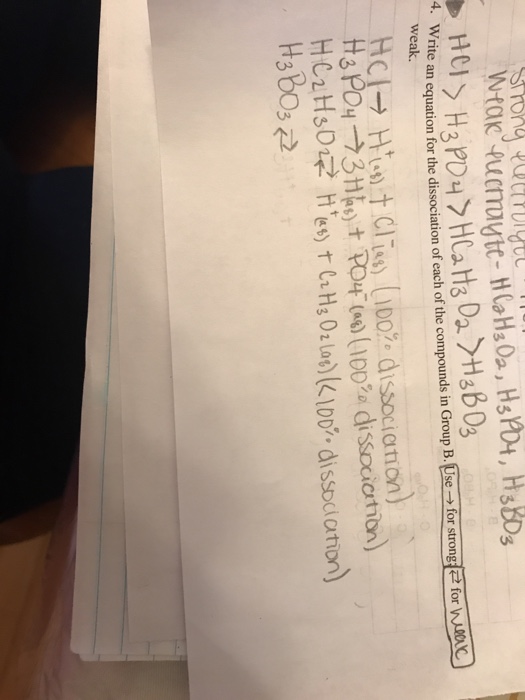 Strong electrolyte
Weak electrolyte - HC2H3O2, H3PO4, H3BO3
HCl > H3PO4 > HC2H3O2 > H3BO3
4. Write an equation for the dissociation of each of the compounds in Group B. Use → for strong; ⇄ for weak
weak.
HCl → H+(aq) + Cl-(aq) (100% dissociation)
H3PO4 → 3H+(aq) + PO4-(aq) (100% dissociation)
HC2H3O2 ⇄ H+(aq) + C2H3O2(aq) (<100% dissociation)
H3BO3 ⇄